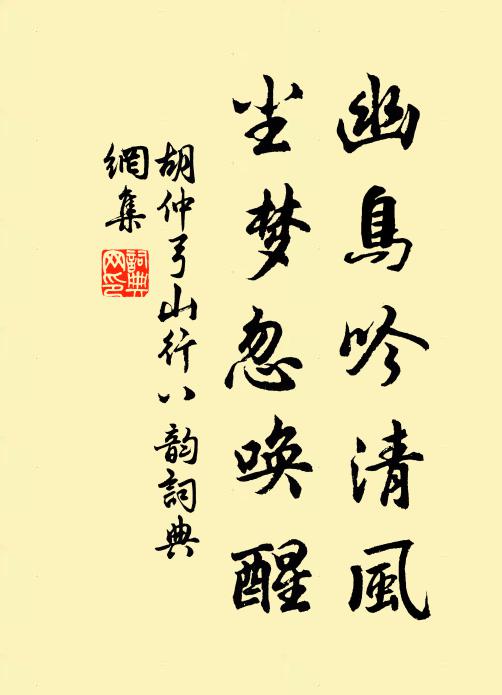 幽鳥吟清風
尘梦忽唤醒
胡仲弓山行八韵詞典
網集
詞典
网印